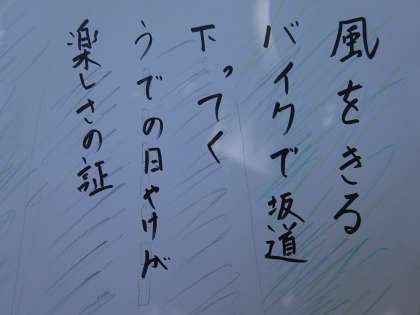 風をきる
バイクで坂道
下ってく
うでの日やけが
楽しさの証